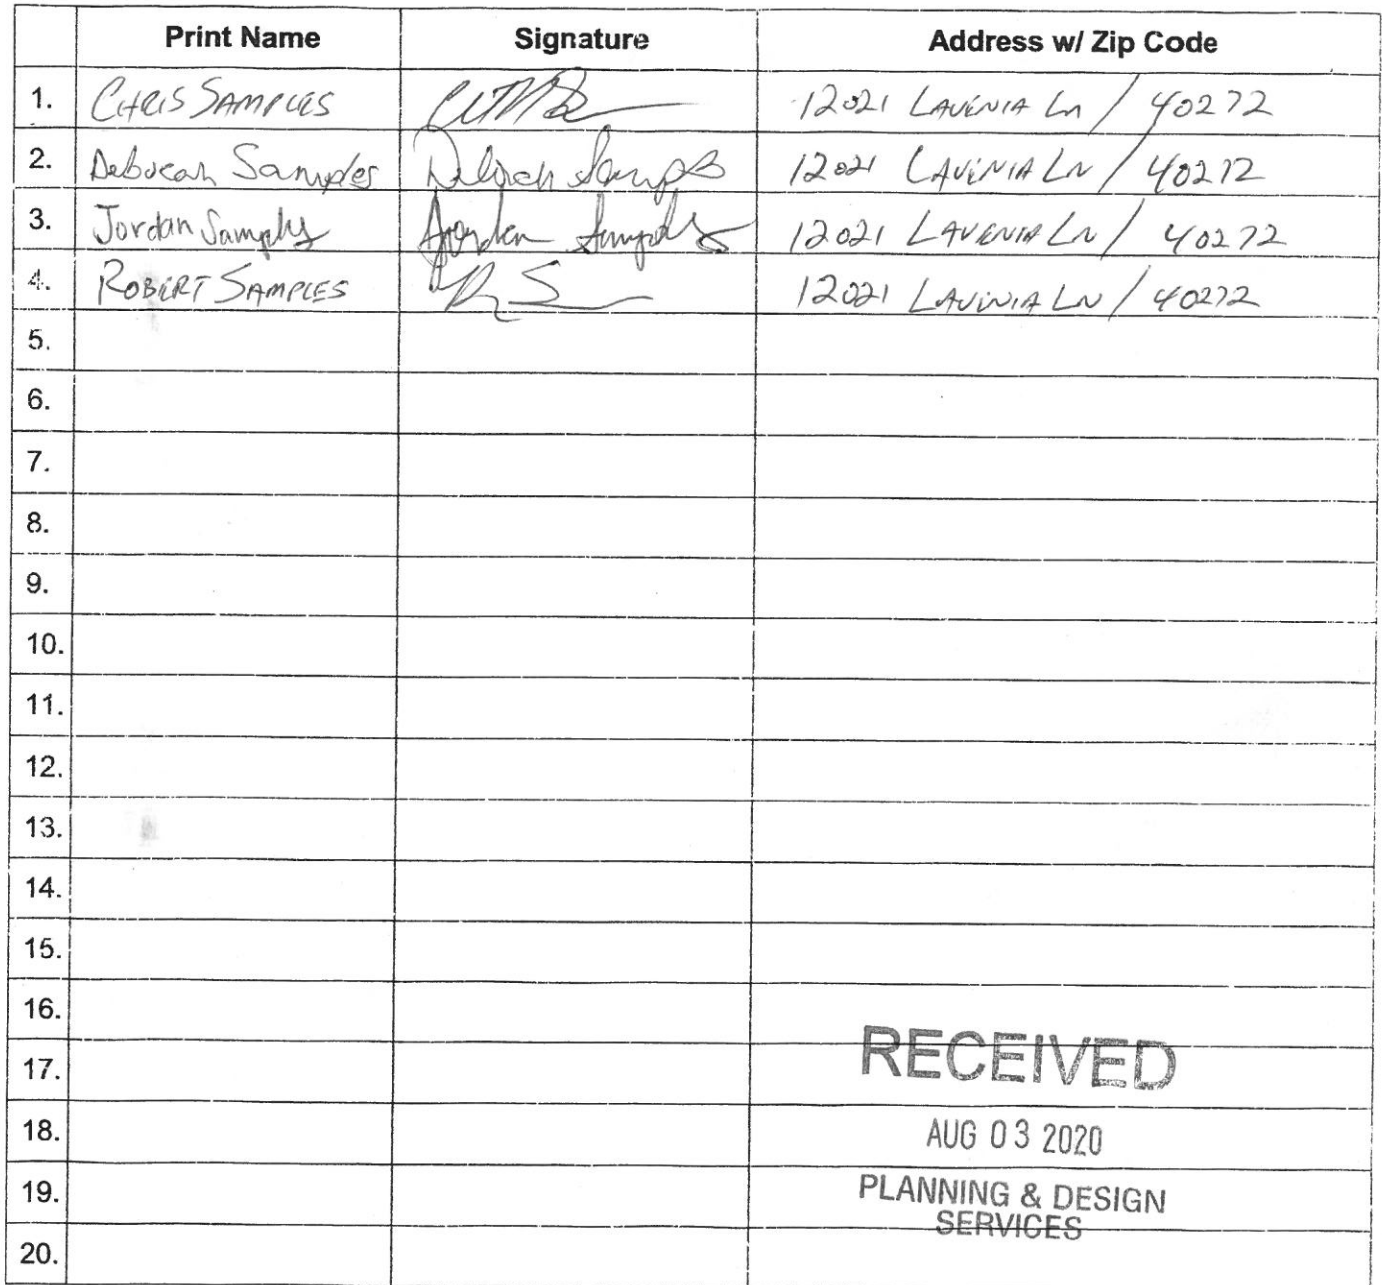 Print Name Signature Address w/ Zip Code
1. CHRIS SAMPLES 12021 LAVENIA Ln / 40272
2. Deborah Samples Deborah Samples 12021 LAVENIA LN / 40272
3. Jordan Samples Jordan Samples 12021 LAVENIA LN / 40272
4. ROBERT SAMPLES 12021 LAVINIA LN / 40272
5.
6.
7.
8.
9.
10.
11.
12.
13.
14.
15.
16.
17. RECEIVED
18. AUG 03 2020
19. PLANNING & DESIGN
SERVICES
20.